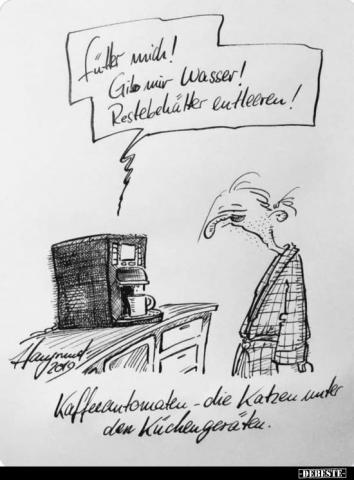 Fütter mich!
Gib mir Wasser!
Restebehälter entleeren!
Hauptmut
2019
Kaffeeautomaten - die Katzen unter
den Küchengeräten.
-DEBESTE-